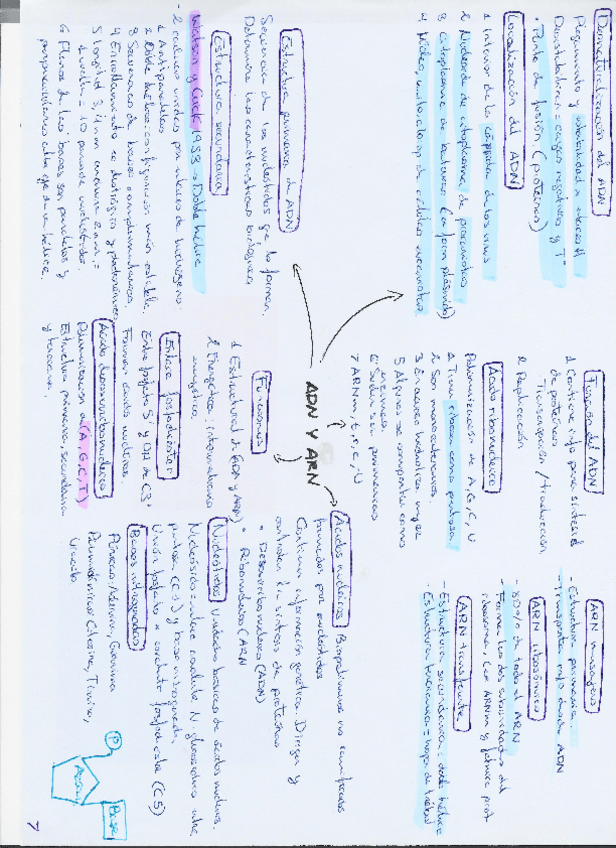 ADN Y ARN
Ácidos nucleicos Biopolímeros no ramificados
formados por nucleótidos
Contiene información genética. Dirige y
controlan la síntesis de proteínas
• Desoxirribonucleico (ADN)
• Ribonucleico (ARN
Nucleótidos Unidades básicas de ácidos nucleicos.
Nucleósidos: enlace N glucosídico entre
pentosa (C-1) y base nitrogenada
Unión fosfato a nucleósido fosfoéster (C5)
Bases nitrogenadas
Púricas: Adenina, Guanina
Pirimidínicas: Citosina, Timina,
Uracilo
P
Azúcar
Base
Funciones
1 Estructural de (ADN y ARN)
2 Energética: intermediario
energético
Enlace fosfodiéster
Entre fosfato 5' y OH de C3'
Forman ácidos nucleicos
Ácido desoxirribonucleico
Polimerización de (A, G, C, T)
Estructura primaria, secundaria
y terciaria.
Estructura primaria de ADN
Secuencia de los nucleótidos que lo forman.
Determina las características biológicas
Estructura secundaria
Watson y Crick 1953 → Doble hélice
- 2 cadenas unidas por enlaces de hidrógeno.
1 Antiparalelas
2 Doble hélice: configuración más estable
3 Secuencias de bases complementarias
4 Enrollamiento es dextrógiro y plectonémico
5 Longitud 3,4 nm
1 vuelta = 10 pares de nucleótidos.
6 Planos de las bases son paralelos y
perpendiculares al eje de la hélice.
Desnaturalización del ADN
Plegamiento y estabilidad
Desestabilizan = cargas negativas y Tª
• Punto de fusión. (proteínas)
Localización del ADN
1 Interior de la cápsida de los virus
2 Nucleoide de citoplasma de procariotas
3 Citoplasma de bacterias (en forma plásmido)
4 Núcleo, de células eucariotas
Función del ADN
1 Contiene info para síntesis
de proteínas
Transcripción / traducción
2 Replicación
Ácido ribonucleico
Polimerización de A, G, C, U
1 Tiene ribosa como pentosa
2 Son monocatenarios.
5 Algunos se comportan como
enzimas
7 ARNm, t, r, c, U
ARN mensajero
- Estructura primaria.
- Transporta info desde ADN
ARN ribosómico
- 80% de todo el ARN
- Forma las dos subunidades del
ribosoma, lee ARNm y fabrica prot
ARN transferente
- Estructura secundaria = doble hélice
- Estructura terciaria = hoja de trébol
7